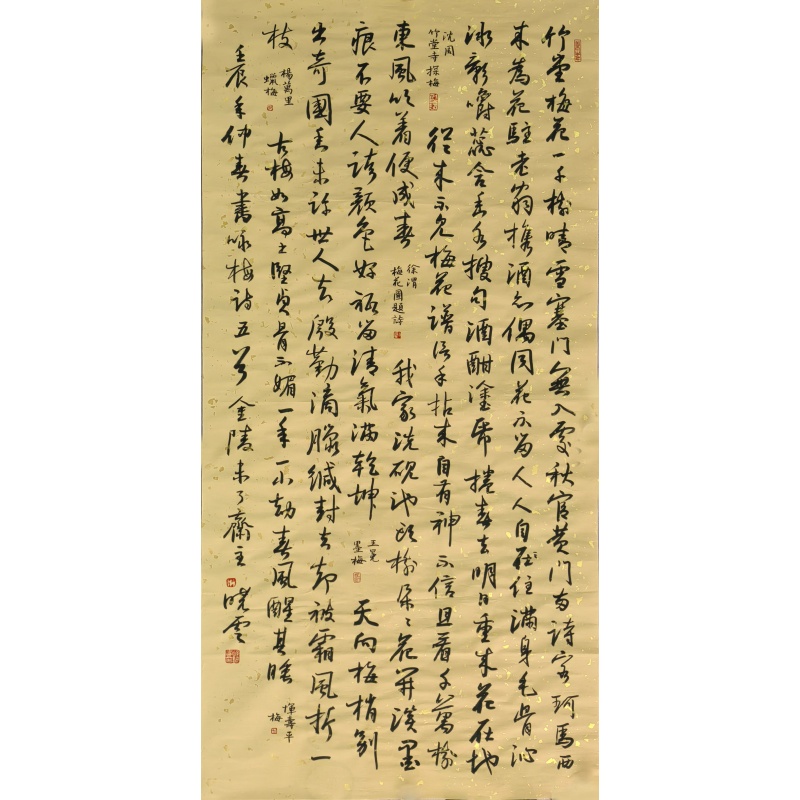 竹堂梅花一千樹晴雪塞門無入處秋官黄門両詩客珂馬西
來為花駐老翁攜酒亦偶同花不留人人自在住滿身毛骨沁
冰影嚼蕊含香各搜句酒酣塗紙捲春去明日重來花在地
沈周
竹堂寺探梅
從來不見梅花譜信手拈來自有神不信且看千萬樹
東風吹着便成春
徐渭
梅花圖題詩
我家洗硯池頭樹朵朵花開淡墨
痕不要人誇顏色好祇留清氣滿乾坤
王冕
墨梅
天向梅梢別
出奇國香未許世人知殷勤滴臘緘封去却被霜風折一
枝
楊萬里
蠟梅
古梅如高士堅貞骨不媚一年一小劫春風醒其睡
惲壽平
梅
壬辰年仲春書咏梅詩五首金陵未了齋主曉雲